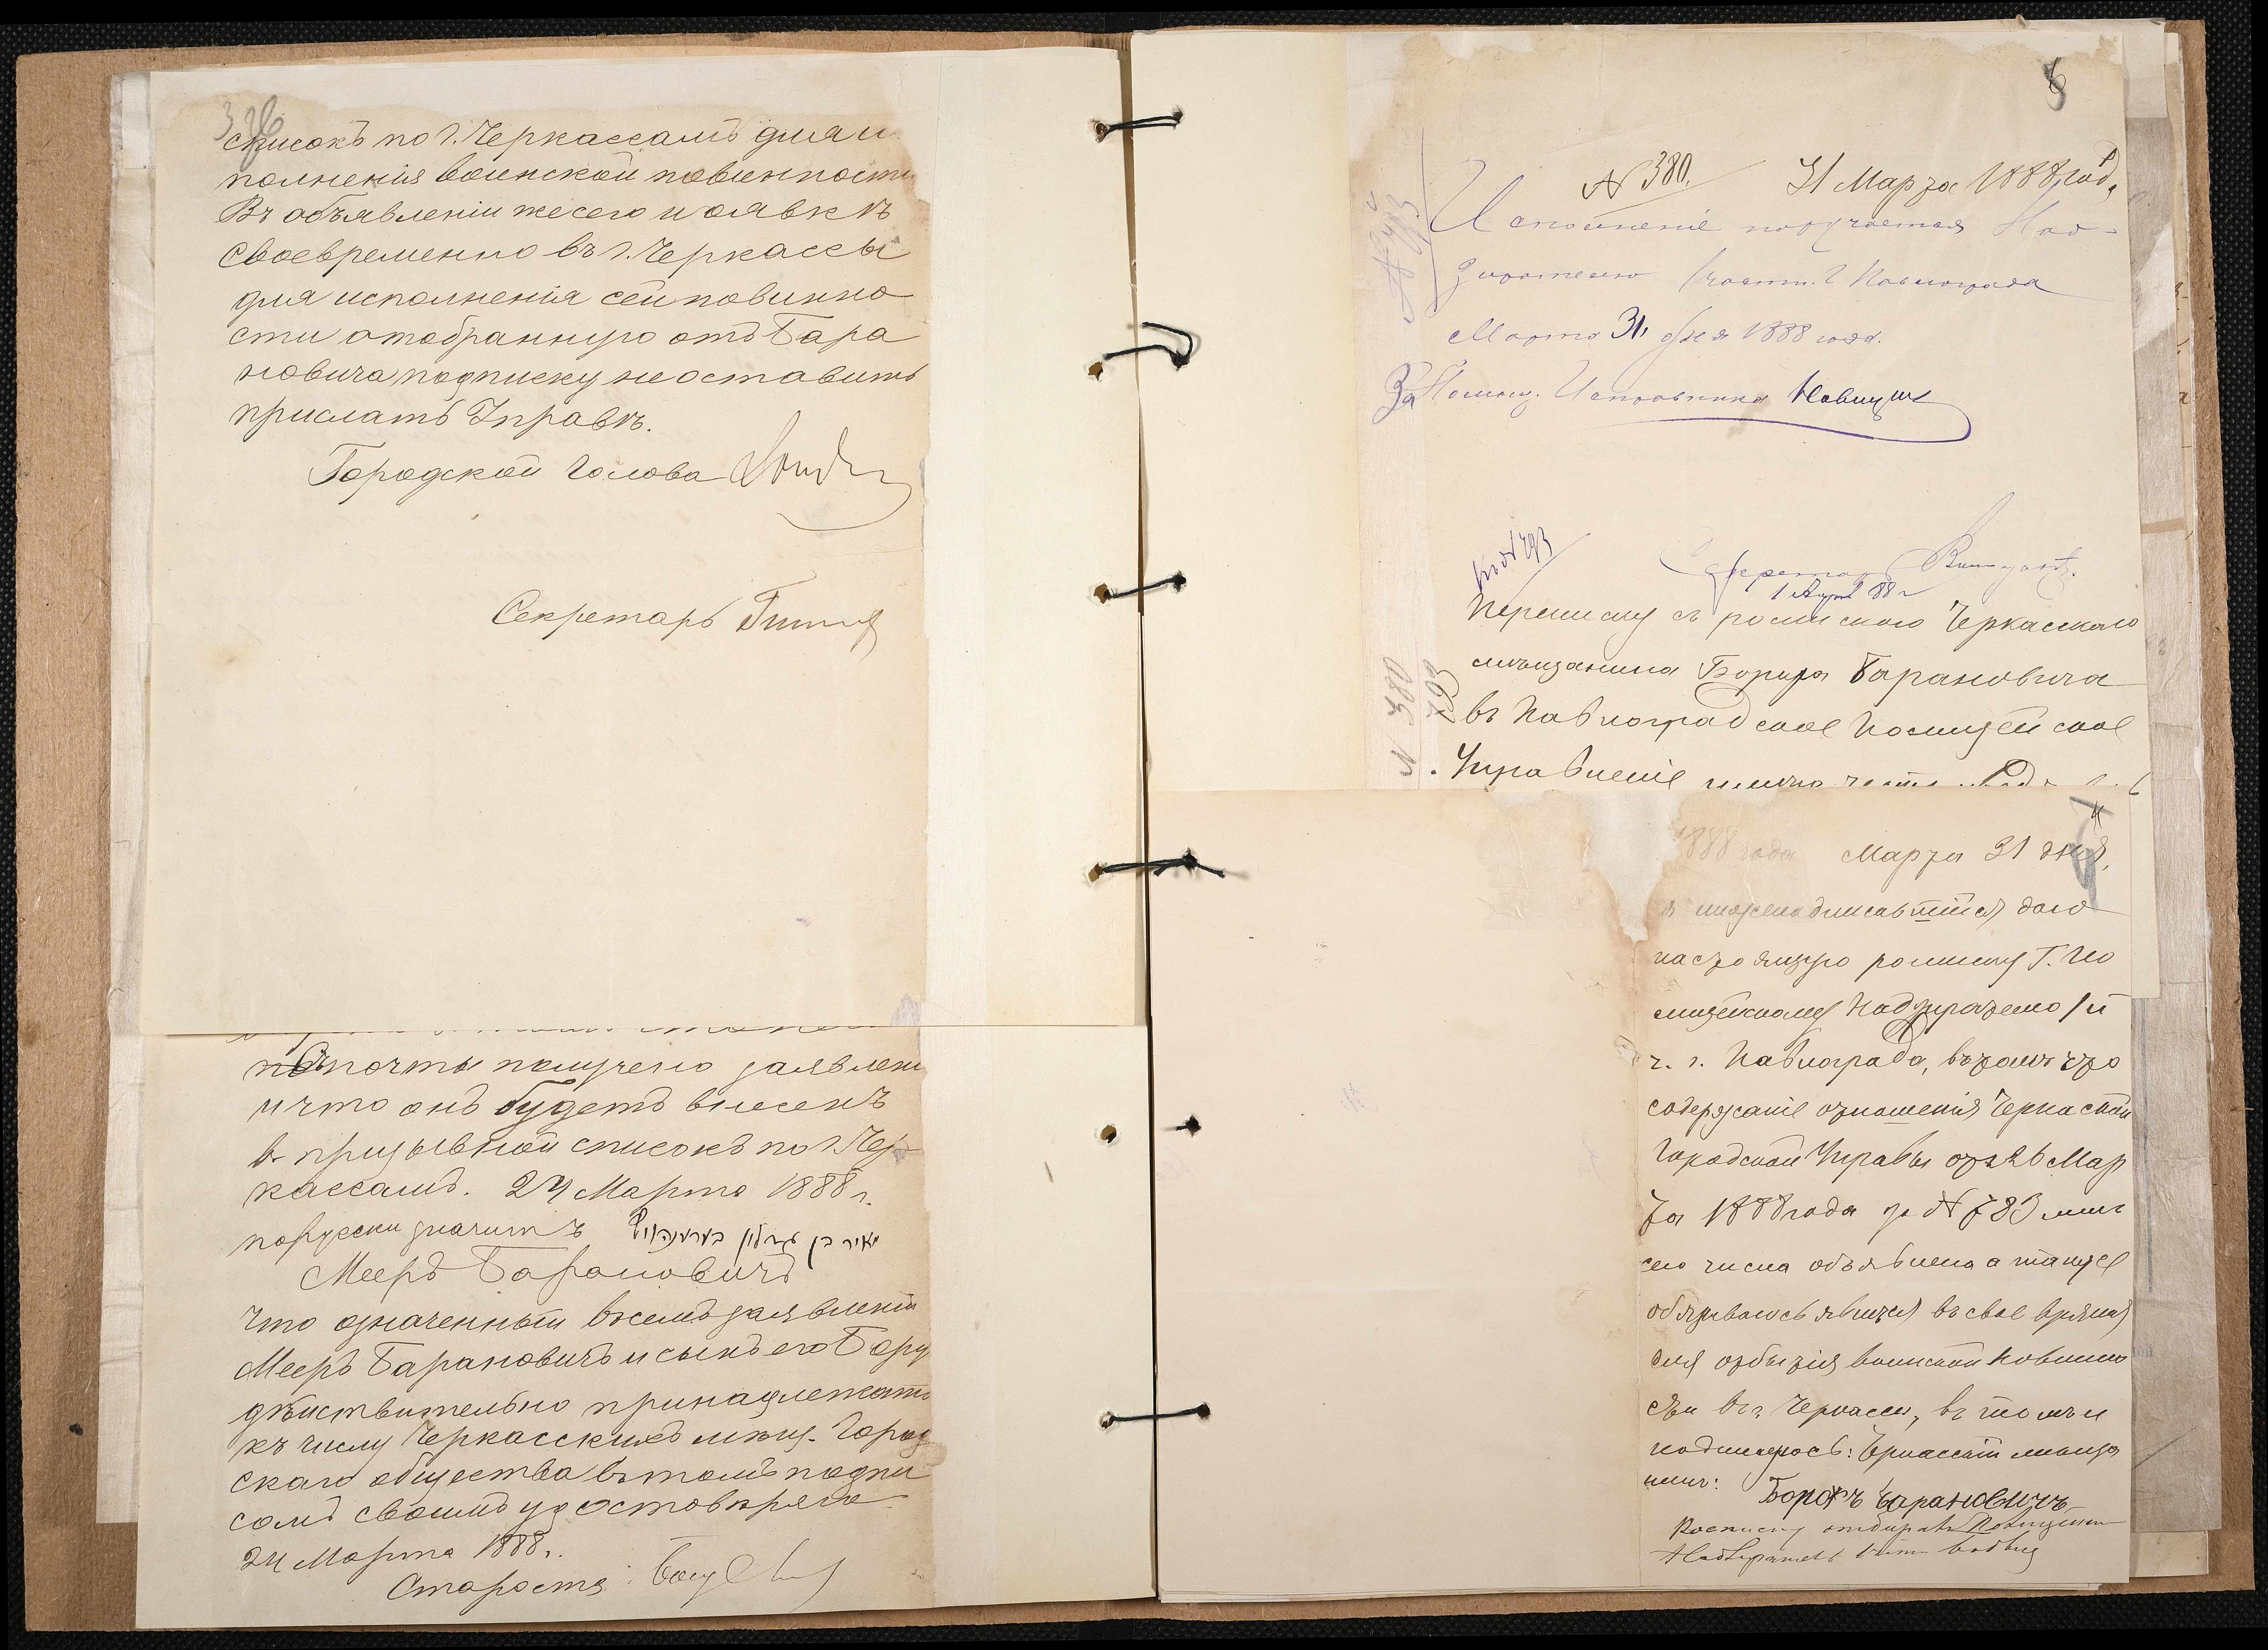 списокъ по г. Черкассамъ для и
полненія воинской повинности
Въ объявленіи же сего и о явкѣ
своевременно въ г. Черкассы
для исполненія сей повинно
сти отобранную отъ Бара
новича подписку не оставить
прислать Управѣ.
Городской Голова
Секретарь
почты получено заявлен
и что онъ будетъ внесенъ
въ призывной списокъ по г. Чер
кассамъ. 24 Марта 1888 г.
по русски значитъ יאיר בן
Мееръ Барановичъ
что означенный въ семъ заявленіи
Мееръ Барановичъ и сынъ его Бору
дѣйствительно принадлежатъ
къ числу Черкасскихъ мѣщ. Город
скаго общества въ томъ подпи
сомъ своимъ удостовѣряю
24 Марта 1888 г.
Староста
№ 380. 31 Марта 1888 года
Исполненіе поручается Над-
зирателю 1 части г. Павлограда
Марта 31 дня 1888 года.
За Помощ. Исправника Новицкій
Секретарь
1 Апр 88 г
Переписку съ роспискою Черкасскаго
мѣщанина Боруха Барановича
въ Павлоградское Полицейское
Управленіе
№ 380
793
1888 года Марта 31 дня,
я нижеподписавшійся даю
настоящую росписку Г. По
лицейскому Надзирателю 1й
ч. г. Павлограда, въ томъ что
содержаніе отношенія Черкаской
Городской Управы отъ 26 Мар
та 1888 года за № 783 мнѣ
сего числа объявлено а также
обязываюсь явится въ свое время
для отбытія воинской повинно
сти въ г. Черкассы, въ томъ и
подписуюсь: Черкасскій мѣща
нинъ: Борохъ Барановичъ
Росписку отбиралъ Полицейскій
Надзиратель